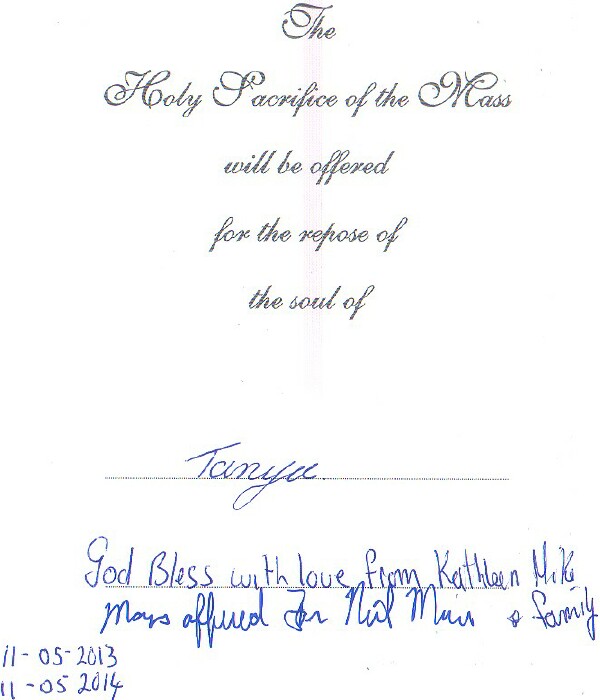 The
Holy Sacrifice of the Mass
will be offered
for the repose of
the soul of
Tanya
God Bless with love from Kathleen Mike
Mass offered For & family
11-05-2013
11-05 2014